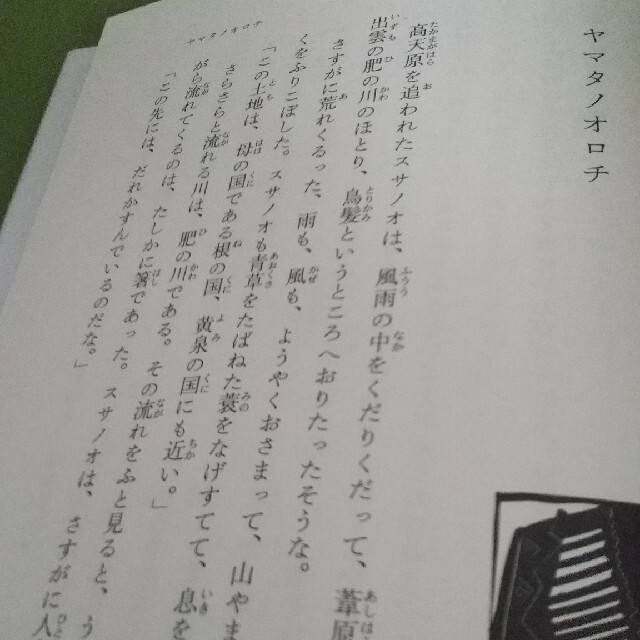 ヤマタノオロチ
高天原を追われたスサノオは、風雨の中をくだりくだって、葦原
出雲の肥の川のほとり、鳥髪というところへおりたったそうな。
さすがに荒れくるった、雨も、風も、ようやくおさまって、山やま
くをふりこぼした。スサノオも青草をたばねた蓑をなげすてて、息を
「この土地は、母の国である根の国、黄泉の国にも近い。」
さらさらと流れる川は、肥の川である。その流れをふと見ると、う
がら流れてくるのは、たしかに箸であった。スサノオは、さすがに人
「この先には、だれかすんでいるのだな。」
ヤマタノオロチ